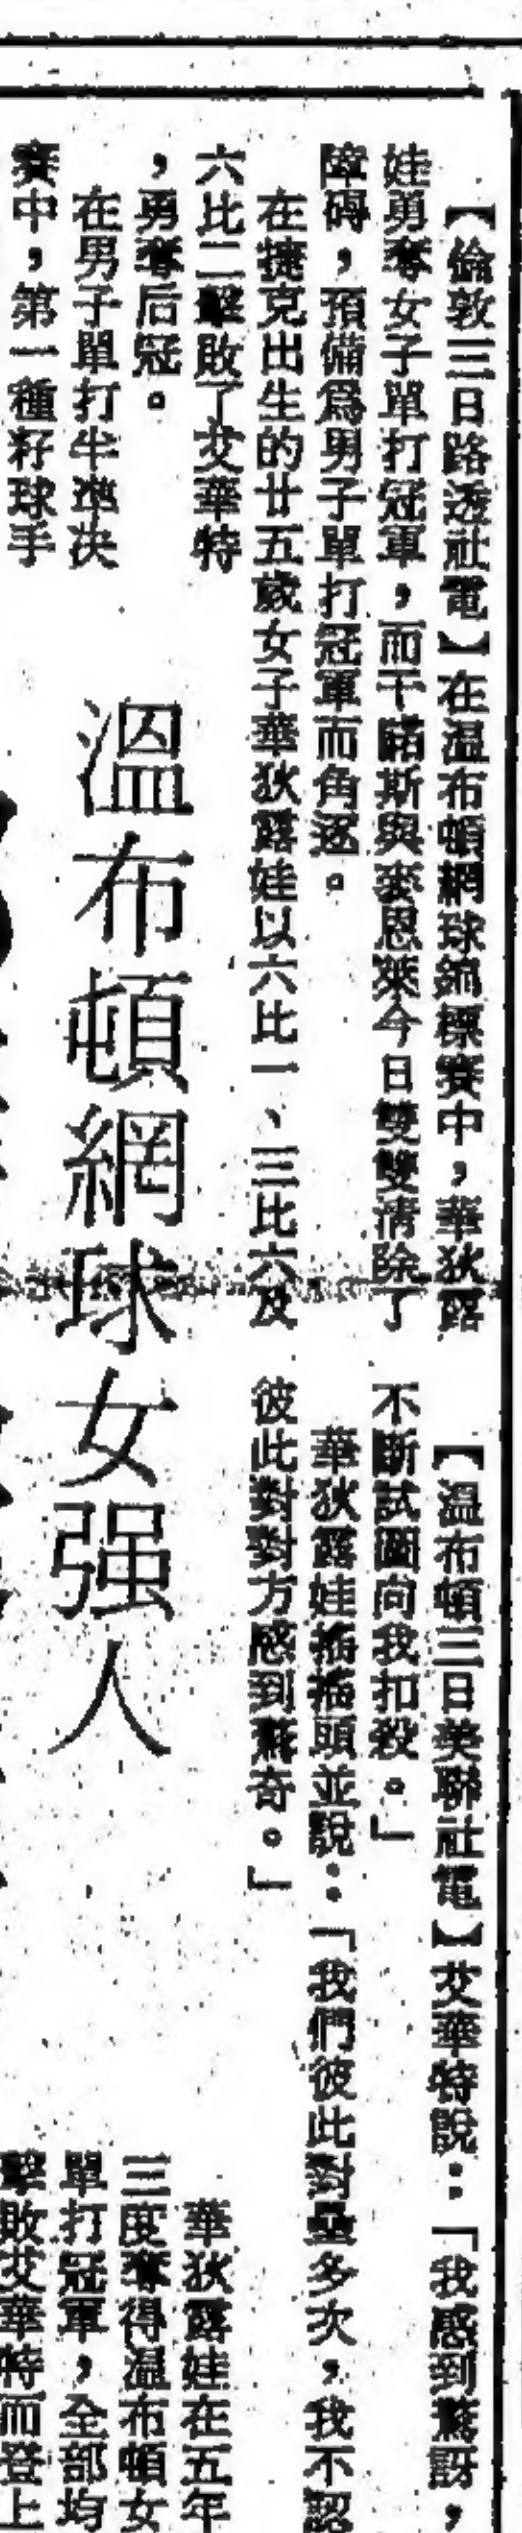 【倫敦三日路透社電】在温布頓網球錦標賽中，華狄露
娃勇奪女子單打冠軍，而干諾斯與麥恩萊今日雙雙清除了
障碍，預備爲男子單打冠軍而角逐。
在捷克出生的廿五歲女子華狄露娃以六比一、三比六及
六比二擊敗了艾華特
，勇奪后冠。
在男子單打半準決
賽中，第一種籽球手
溫布頓網球女强人
【溫布頓三日美聯社電】艾華特說：「我感到驚訝，
不斷試圖向我扣殺。」
華狄露娃搖搖頭並說：「我們彼此對壘多次，我不認
彼此對對方感到驚奇。」
華狄露娃在五年
三度奪得温布頓女
單打冠軍，全部均
擊敗艾華特而登上